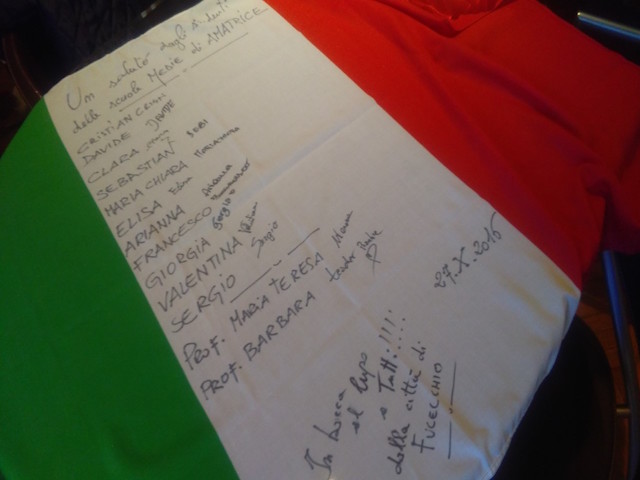 Un saluto dagli studenti
della scuola Media di AMATRICE
CRISTIAN CRISTI
DAVIDE DAVIDE
CLARA
SEBASTIAN SEBI
MARIA CHIARA
ELISA
ARIANNA Arianna
FRANCESCO
GIORGIA Giorgia
VALENTINA
SERGIO Sergio
PROF. MARIA TERESA
PROF. BARBARA
27.X.2016
In bocca
al lupo
a Tutti!!!!
dalla città di
FUCECCHIO